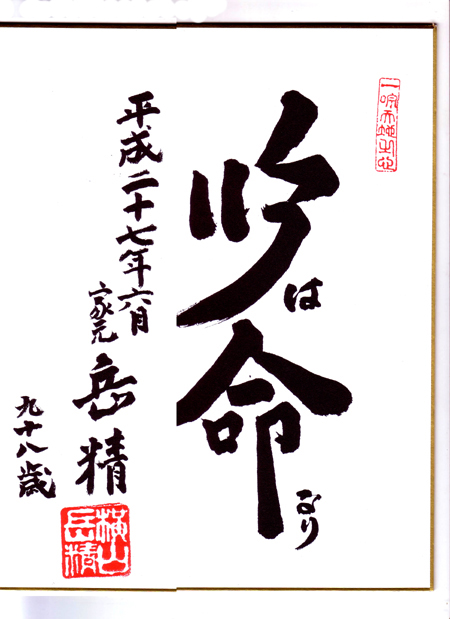 吟は命なり
平成二十七年六月
家元 岳精
九十八歳
横山岳精